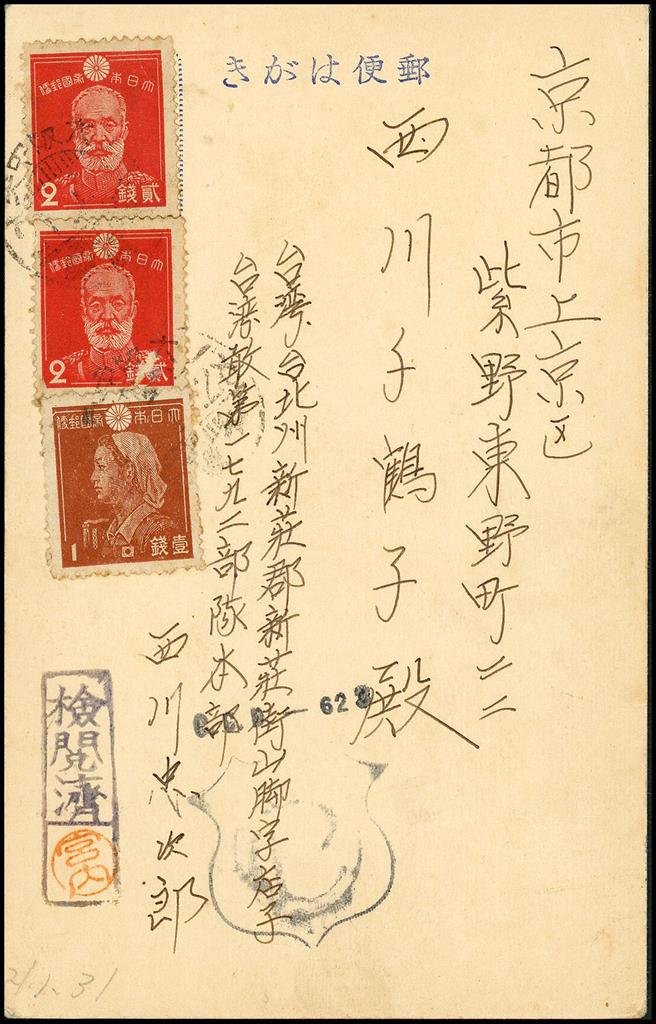 きがは便郵
京都市上京区
紫野東野町二二
西川千鶴子殿
台湾台北州新莊郡新莊街山脚字店子
台湾敢第一七九二部隊本部
西川忠次郎
便郵國帝本日大
2 錢貳
便郵國帝本日大
2 錢貳
便郵國帝本日大
1 錢壹
623
檢閱濟
宮内
21.1.31